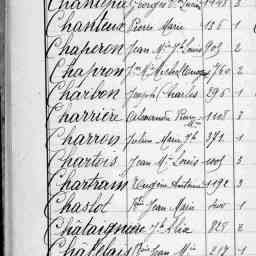 Georges
Chanteux Pierre Marie 136 1
Chaperon Jean Mie Js Louis 903 2
Chapron 760 2
Charbon Joseph Charles 296 1
Charrière Alexandre Pierre Mie 1108 3
Charron Julien Marie Jh 371 1
Chartois Jean Mie Louis 1005 3
Chartram Eugène Antoine 1192 3
Chaslot Jean Marie 400 1
Châtaignère Elie 825 2
Châtelais Jean Mie 217 1